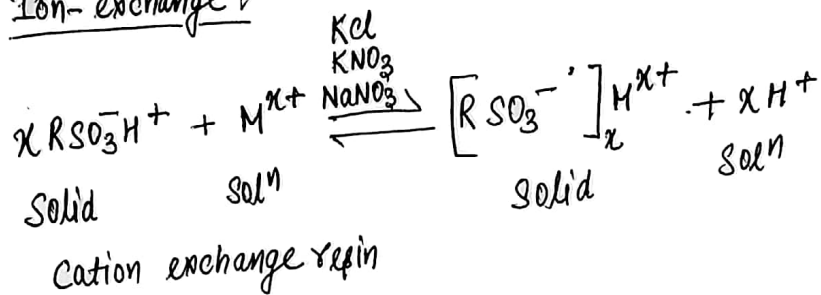 Ion-exchange :
KCl
KNO3
x RSO3⁻H⁺ + M^x+ NaNO3 ⇌ [R SO3⁻]x M^x+ + x H⁺
Solid Solⁿ Solid Solⁿ
Cation exchange resin